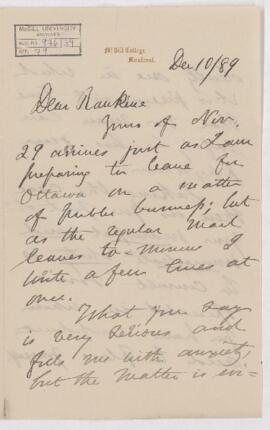 McGILL UNIVERSITY
ARCHIVES
ACC. NO. 976/39
REF. 79
McGill College,
Montreal.
Dec 10/89
Dear Rankine
Yours of Nov.
29 arrives just as I am
preparing to leave for
Ottawa on a matter
of public business; but
as the regular mail
leaves to-morrow I
write a few lines at
once.
What you say
is very serious and
fills me with anxiety,
but the matter is evi-